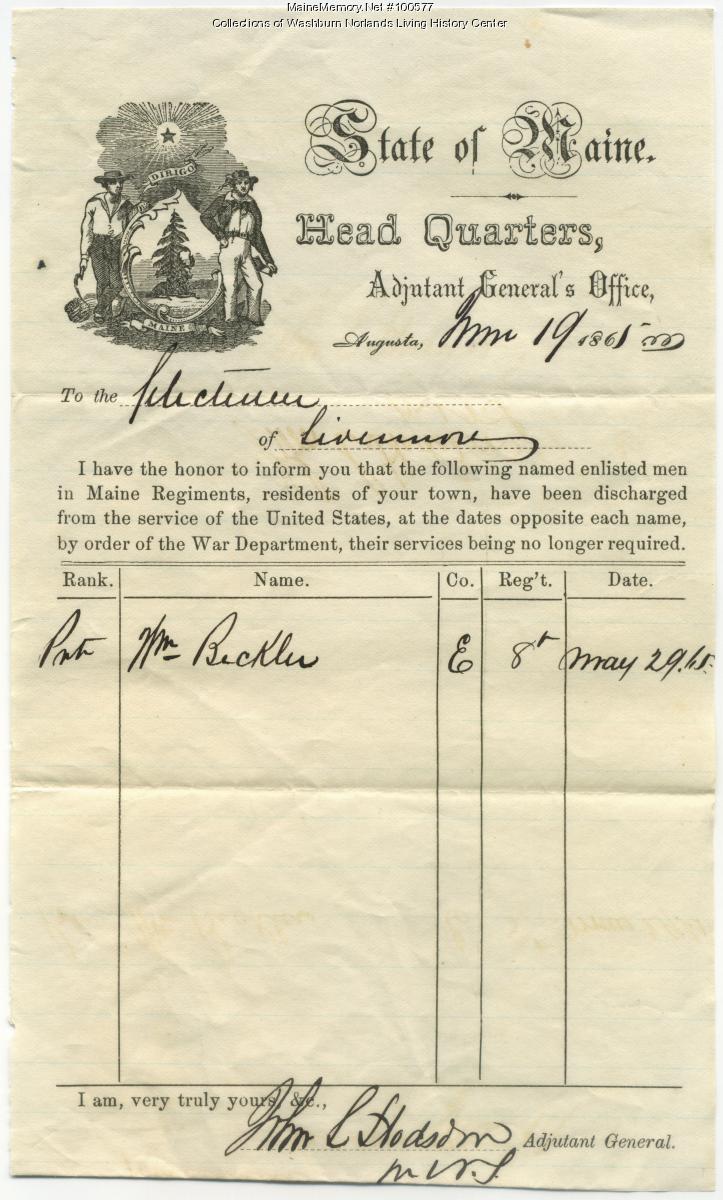 MaineMemory.Net #100577
Collections of Washburn Norlands Living History Center
DIRIGO
MAINE
State of Maine.
Head Quarters,
Adjutant General's Office,
Augusta, June 19 1865
To the Selectmen
of Livermore
I have the honor to inform you that the following named enlisted men
in Maine Regiments, residents of your town, have been discharged
from the service of the United States, at the dates opposite each name,
by order of the War Department, their services being no longer required.
Rank. Name. Co. Reg't. Date.
Wm Beckler E 8th May 29.65.
I am, very truly yours, &c.,
John L Hodsdon Adjutant General.